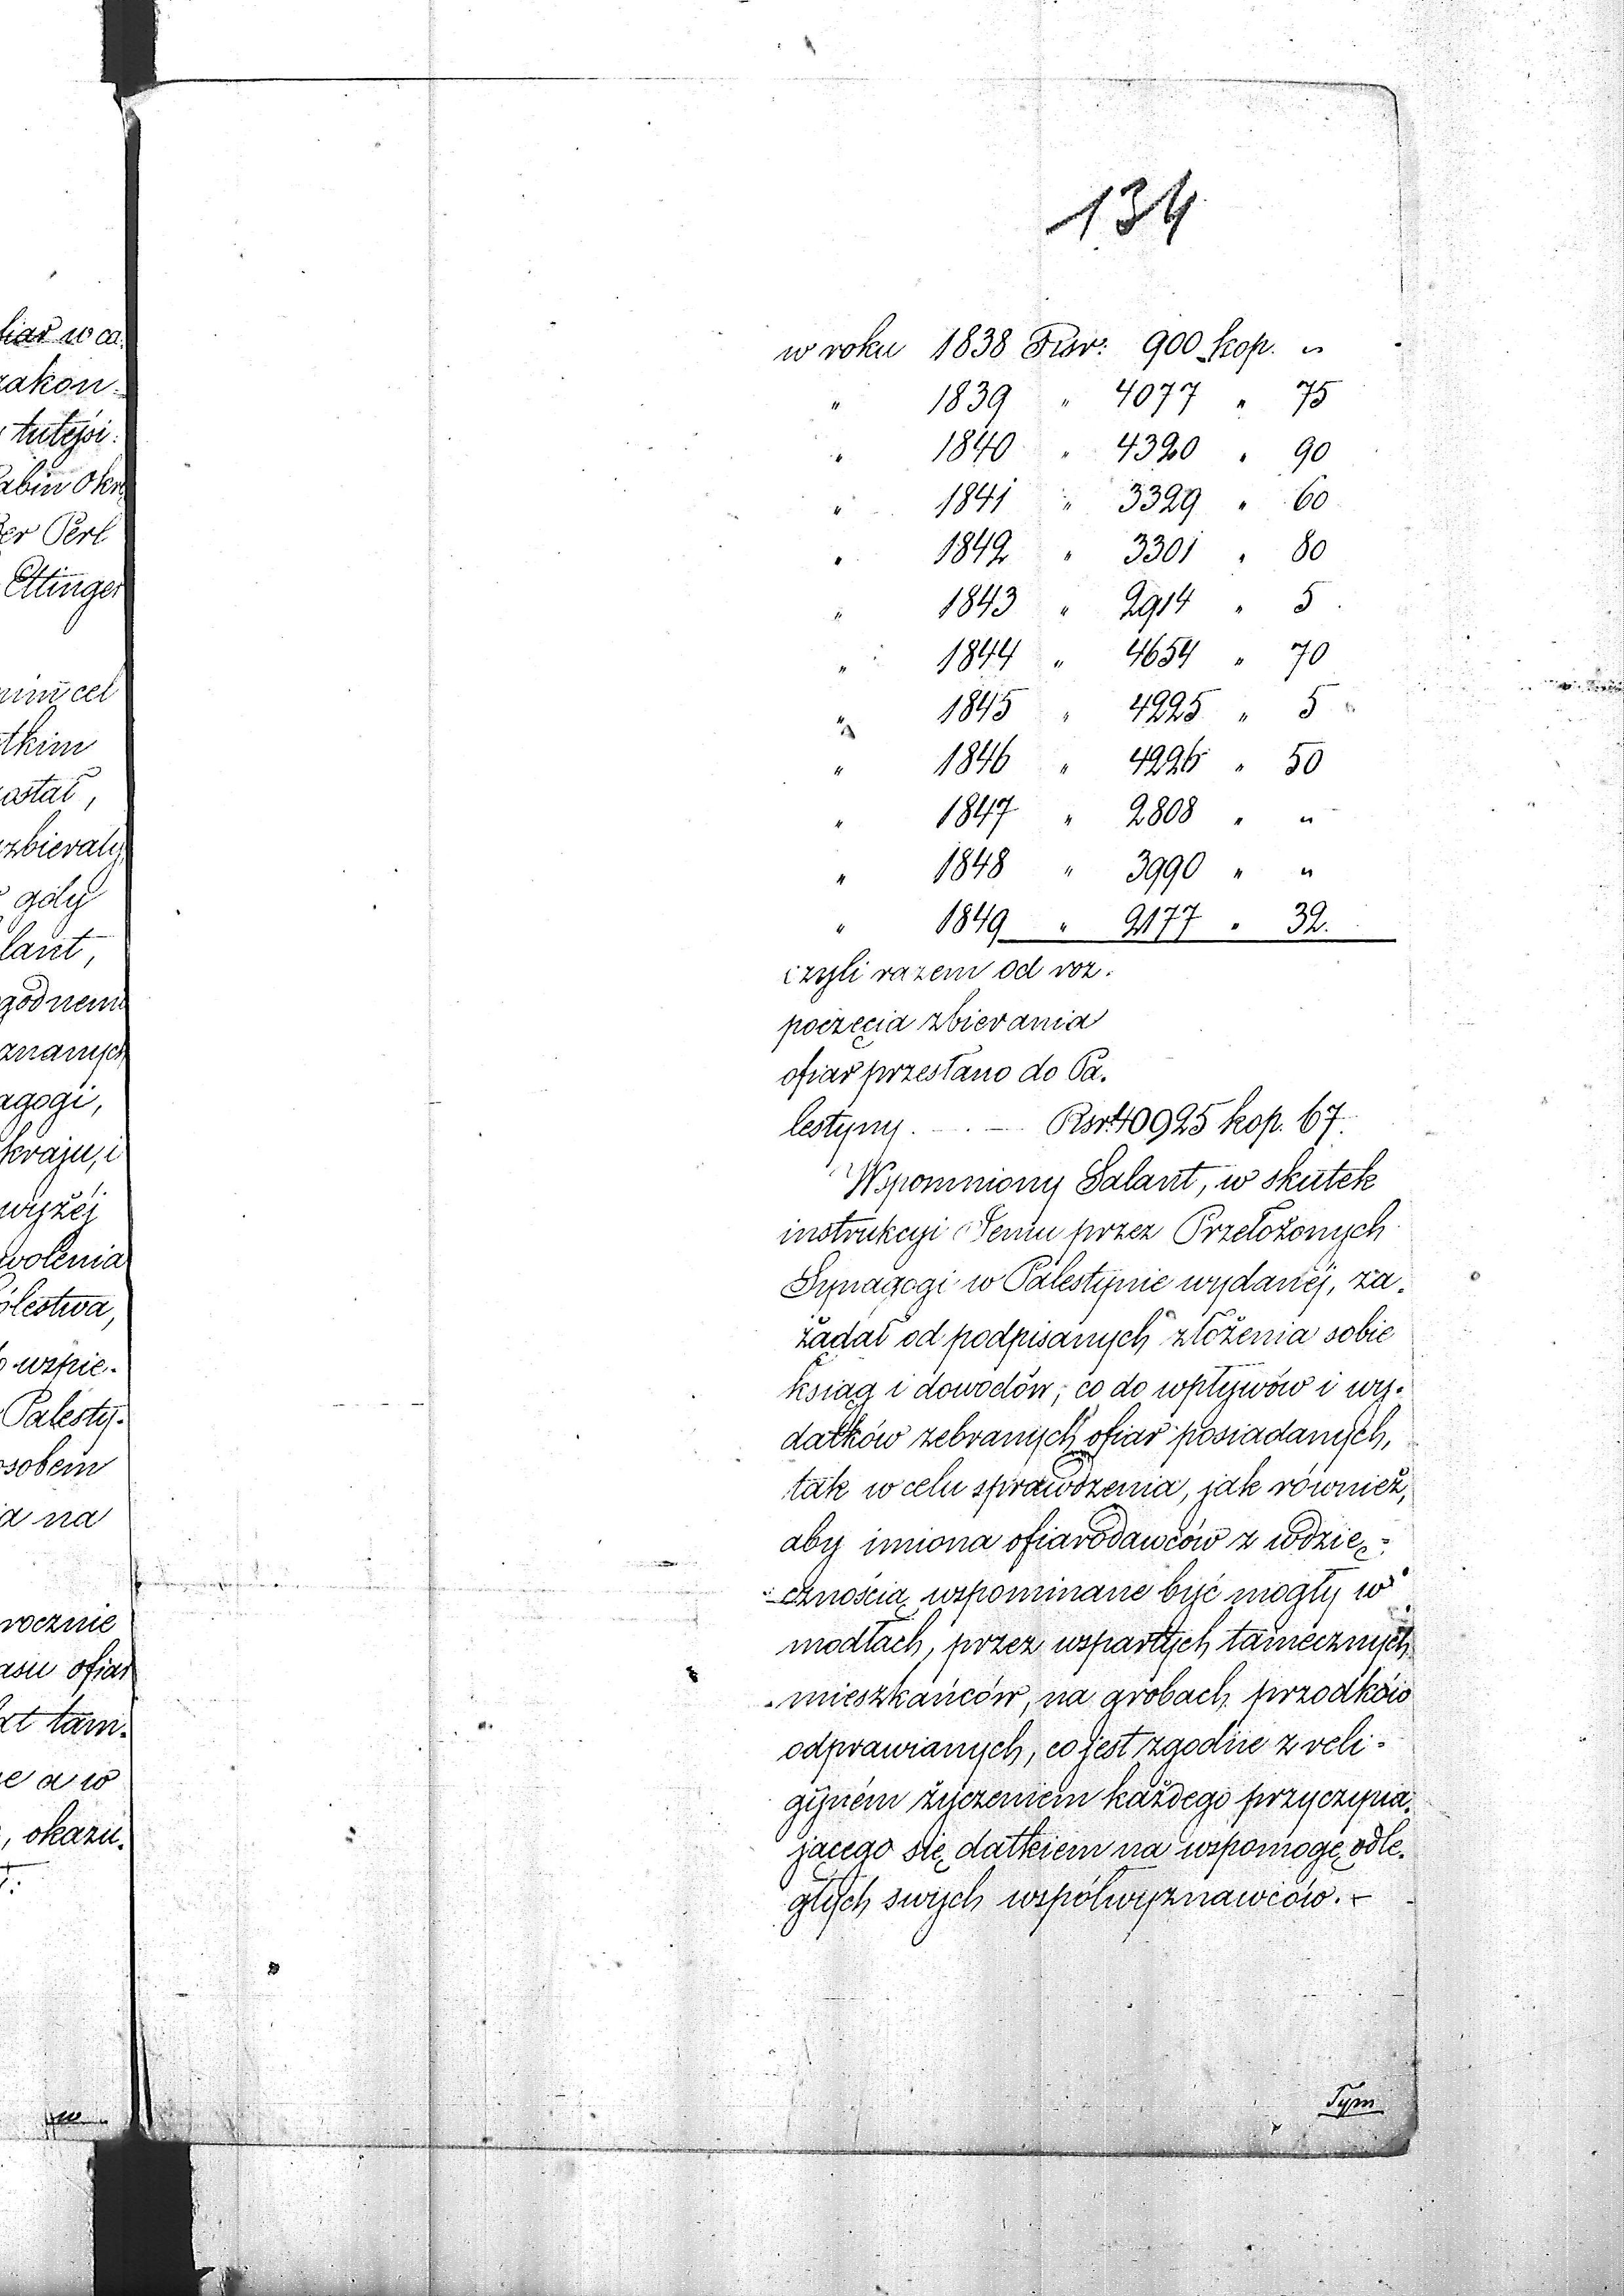 134
w roku 1838 Rsr: 900 kop. "
" 1839 " 4077 " 75
" 1840 " 4320 " 90
" 1841 " 3329 " 60
" 1842 " 3301 " 80
" 1843 " 2914 " 5
" 1844 " 4654 " 70
" 1845 " 4225 " 5
" 1846 " 4226 " 50
" 1847 " 2808 " "
" 1848 " 3990 " "
" 1849 " 2177 " 32.
czyli razem od roz.
poczęcia zbierania
ofiar przesłano do Pa.
lestyny. . — . — Rsr. 40925 kop. 67.
Wspomniony Salant, w skutek
instrukcyi Jemu przez Przełożonych
Synagogi w Palestynie wydanéj, za.
żądał od podpisanych złożenia sobie
ksiąg i dowodów, co do wpływów i wy.
datków zebranych ofiar posiadanych,
tak w celu sprawdzenia, jak również,
aby imiona ofiarodawców z wdzię-
cznością wspominane być mogły w
modłach, przez wspartych tamecznych
mieszkańców, na grobach przodków
odprawianych, co jest zgodne z reli-
gijném życzeniem każdego przyczynia.
jącego się datkiem na wspomogę odle.
głych swych współwyznawców. -
Tym
liar w ca.
zakon-
tutejsi.
abin Okrę
Ber Perl
Ettinger
nim cel
tkim
ostał,
zbierały
gdy
lant,
godnemi
znanych
agogi,
kraju, i
wyżéj
wolenia
ólestwa,
wspie.
Palesty.
osobem
a na
rocznie
asu ofiar
at tam.
e a w
, okazu.